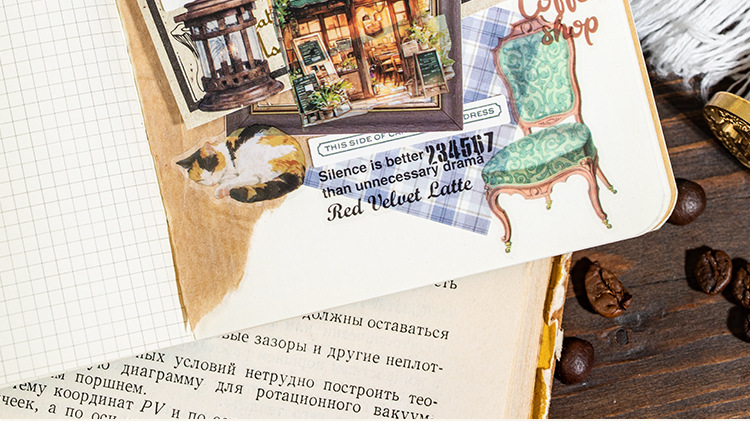 Coffee
shop
THIS SIDE OF
DRESS
Silence is better 234567
than unnecessary drama
Red Velvet Latte
должны оставаться
зазоры и другие неплот-
условий нетрудно построить тео-
диаграмму для ротационного вакуум-
поршнем.
координат PV и по
а по оси